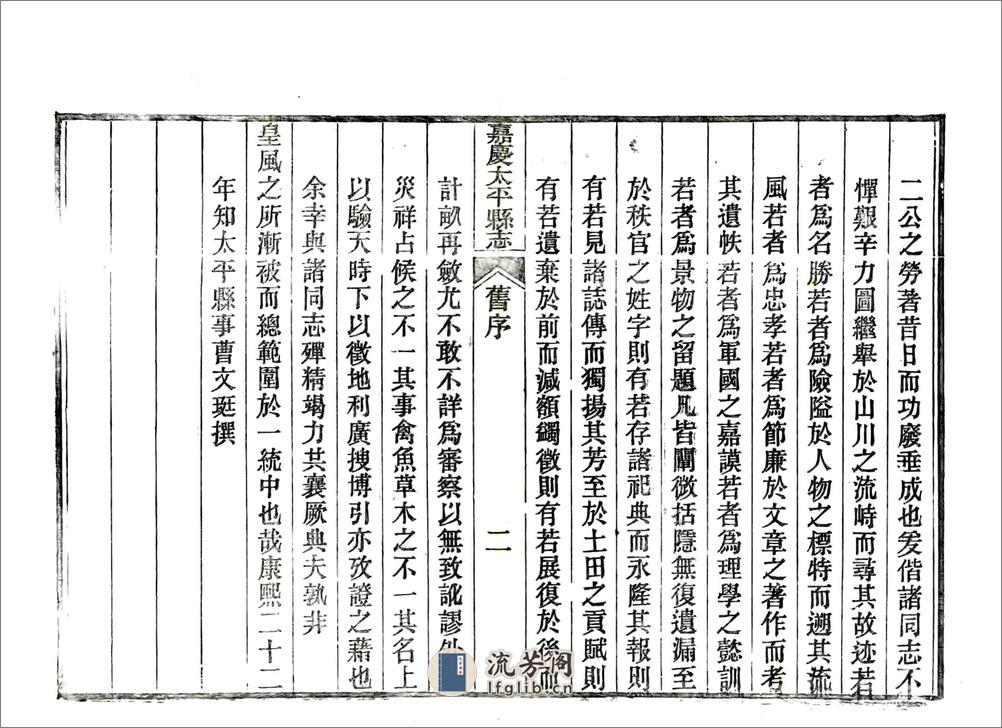 二公之勞著昔日而功廢垂成也爰偕諸同志不
憚艱辛力圖繼舉於山川之流峙而尋其故迹若
者爲名勝若者爲險隘於人物之標特而遡其流
風若者爲忠孝若者爲節廉於文章之著作而考
其遺帙若者爲軍國之嘉謨若者爲理學之懿訓
若者爲景物之留題凡皆闡微括隱無復遺漏至
於秩官之姓字則有若存諸祀典而永隆其報則
有若見諸誌傳而獨揚其芳至於土田之貢賦則
有若遺棄於前而減額蠲徵則有若展復於後而
嘉慶太平縣志
舊序
二
計畝再斂尤不敢不詳爲審察以無致訛謬外
災祥占候之不一其事禽魚草木之不一其名上
以驗天時下以徵地利廣搜博引亦攷證之藉也
余幸與諸同志殫精竭力共襄厥典夫孰非
皇風之所漸被而總範圍於一統中也哉康熙二十二
年知太平縣事曹文珽撰
流芳閣
lfglib.cn